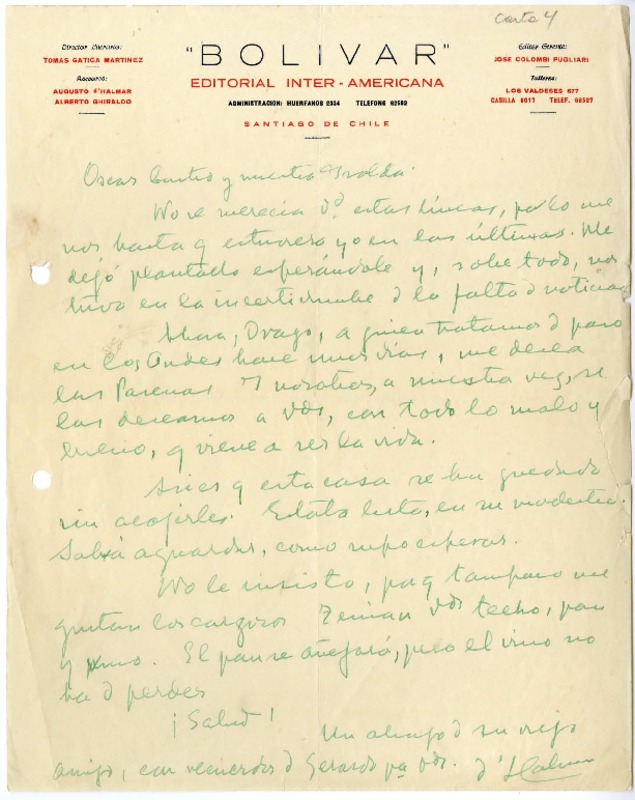 Carta 4
Director Literario:
TOMAS GATICA MARTINEZ
Asesores:
AUGUSTO d'HALMAR
ALBERTO GHIRALDO
"BOLIVAR"
EDITORIAL INTER-AMERICANA
ADMINISTRACION: HUERFANOS 2354 TELEFONO 62502
SANTIAGO DE CHILE
Editor Gerente:
JOSE COLOMBI PUGLIARI
Talleres:
LOS VALDESES 677
CASILLA 6017 TELEF. 62527
Oscar Castro y nuestra Isolda:
No se merecía Vd. estas líneas, por lo me
nos hasta q estuviera yo en las últimas. Me
dejó plantado esperándole y, sobre todo, nos
tuvo en la incertidumbre d la falta d noticias
Ahora, Drago, a quien tratamos d paso
en Los Andes hace unos días, me desea
las Pascuas y nosotros, a nuestra vez, se
las deseamos a Vds, con todo lo malo y
bueno, q viene a ser la vida.
Así es q esta casa se ha quedado
sin acojerles. Estaba lista, en su modestia.
Sabrá aguardar, como supo esperar.
No le insisto, pq tampoco me
gustan los cargosos Tenían Vds techo, pan
y vino. El pan se añejará, pero el vino no
ha d perder
¡Salud!
Un abrazo d su viejo
amigo, con recuerdos d Gerardo pa Vds. d'Halmar